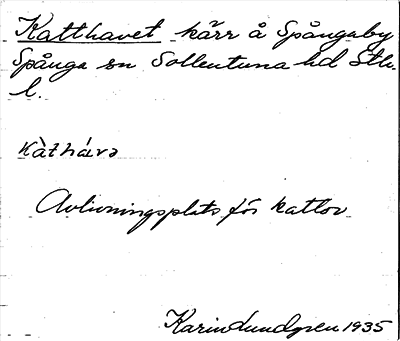 Katthavet kärr å Spångaby
Spånga sn Sollentuna hd Sthlm
l.
kàthávə
Avlivningsplats för kattor
Karin Lundgren 1935